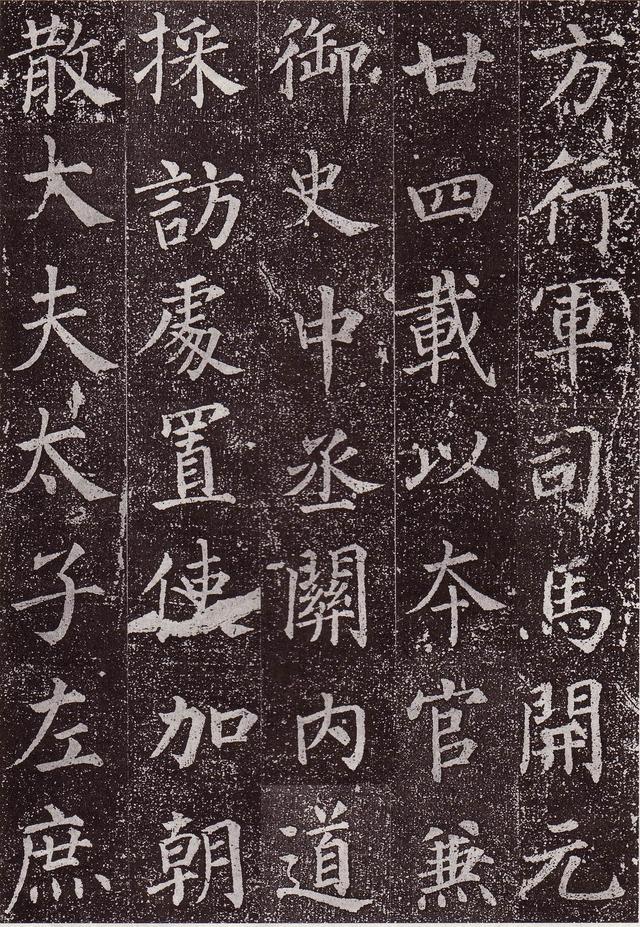 方行軍司馬開元
廿四載以夲官兼
御史中丞關内道
採訪處置使加朝
散大夫太子左庶